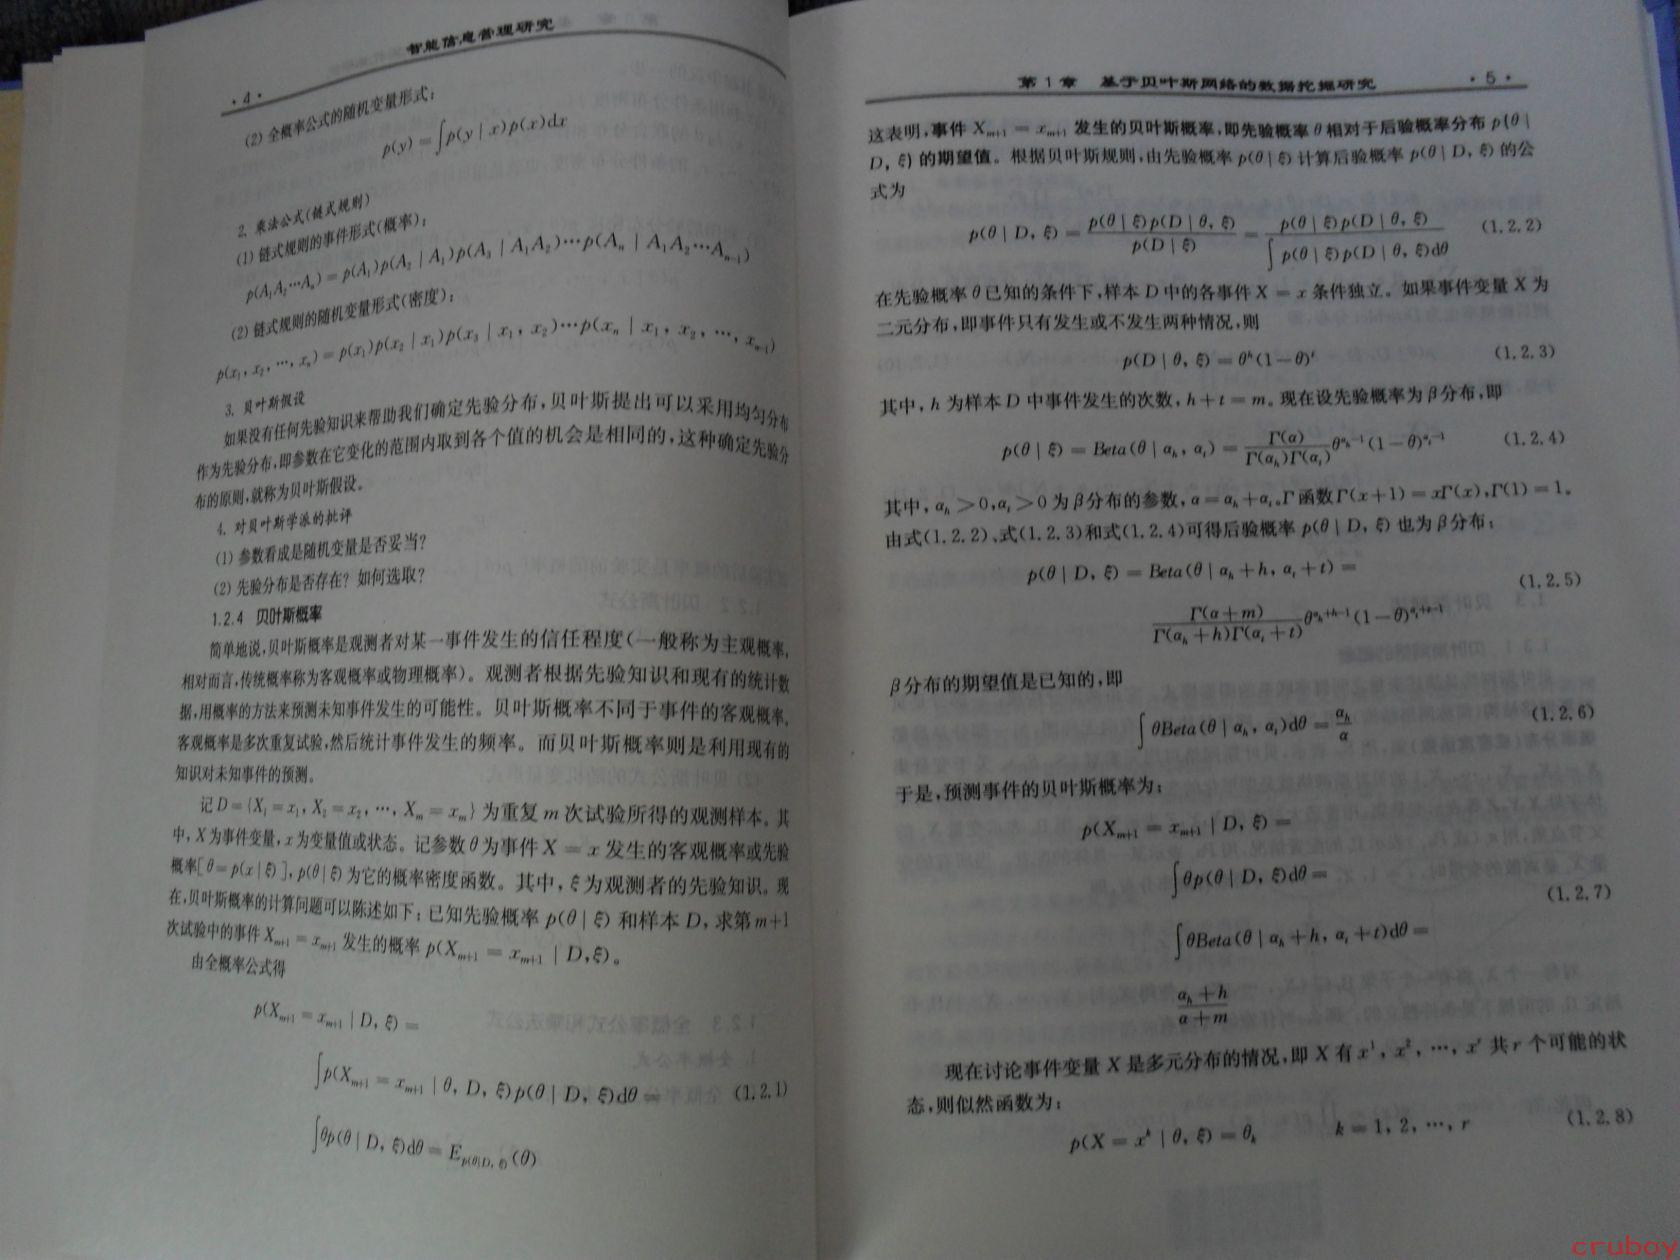 智能信息管理研究
·4·
(2) 全概率公式的随机变量形式：
p(y) = ∫p(y | x)p(x)dx
2. 乘法公式(链式规则)
(1) 链式规则的事件形式(概率)：
p(A₁A₂…Aₙ) = p(A₁)p(A₂ | A₁)p(A₃ | A₁A₂)…p(Aₙ | A₁A₂…Aₙ₋₁)
(2) 链式规则的随机变量形式(密度)：
p(x₁, x₂, …, xₙ) = p(x₁)p(x₂ | x₁)p(x₃ | x₁, x₂)…p(xₙ | x₁, x₂, …, xₙ₋₁)
3. 贝叶斯假设
如果没有任何先验知识来帮助我们确定先验分布，贝叶斯提出可以采用均匀分布
作为先验分布，即参数在它变化的范围内取到各个值的机会是相同的，这种确定先验分
布的原则，就称为贝叶斯假设。
4. 对贝叶斯学派的批评
(1) 参数看成是随机变量是否妥当？
(2) 先验分布是否存在？如何选取？
1.2.4 贝叶斯概率
简单地说，贝叶斯概率是观测者对某一事件发生的信任程度(一般称为主观概率，
相对而言，传统概率称为客观概率或物理概率)。观测者根据先验知识和现有的统计数
据，用概率的方法来预测未知事件发生的可能性。贝叶斯概率不同于事件的客观概率，
客观概率是多次重复试验，然后统计事件发生的频率。而贝叶斯概率则是利用现有的
知识对未知事件的预测。
记 D={X₁=x₁, X₂=x₂, …, Xₘ=xₘ} 为重复 m 次试验所得的观测样本。其
中，X 为事件变量，x 为变量值或状态。记参数 θ 为事件 X = x 发生的客观概率或先验
概率[θ=p(x|ξ)]，p(θ|ξ) 为它的概率密度函数。其中，ξ 为观测者的先验知识。现
在，贝叶斯概率的计算问题可以陈述如下：已知先验概率 p(θ | ξ) 和样本 D，求第 m+1
次试验中的事件 Xₘ₊₁ = xₘ₊₁ 发生的概率 p(Xₘ₊₁ = xₘ₊₁ | D,ξ)。
由全概率公式得
p(Xₘ₊₁ = xₘ₊₁ | D, ξ) =
∫p(Xₘ₊₁ = xₘ₊₁ | θ, D, ξ)p(θ | D, ξ)dθ = (1.2.1)
∫θp(θ | D, ξ)dθ = E_{p(θ|D, ξ)}(θ)
第 1 章 基于贝叶斯网络的数据挖掘研究 ·5·
这表明，事件 Xₘ₊₁ = xₘ₊₁ 发生的贝叶斯概率，即先验概率 θ 相对于后验概率分布 p(θ |
D, ξ) 的期望值。根据贝叶斯规则，由先验概率 p(θ | ξ) 计算后验概率 p(θ | D, ξ) 的公
式为
p(θ | D, ξ) = p(θ | ξ)p(D | θ, ξ) / p(D | ξ) = p(θ | ξ)p(D | θ, ξ) / ∫p(θ | ξ)p(D | θ, ξ)dθ (1.2.2)
在先验概率 θ 已知的条件下，样本 D 中的各事件 X = x 条件独立。如果事件变量 X 为
二元分布，即事件只有发生或不发生两种情况，则
p(D | θ, ξ) = θʰ(1−θ)ᵗ (1.2.3)
其中，h 为样本 D 中事件发生的次数，h+t = m。现在设先验概率为 β 分布，即
p(θ | ξ) = Beta(θ | αₕ, αₜ) = Γ(α) / Γ(αₕ)Γ(αₜ) θ^{αₕ−1}(1−θ)^{αₜ−1} (1.2.4)
其中，αₕ >0,αₜ >0 为 β 分布的参数，α=αₕ+αₜ。Γ 函数 Γ(x+1) = xΓ(x),Γ(1) = 1。
由式(1.2.2)、式(1.2.3)和式(1.2.4)可得后验概率 p(θ | D, ξ) 也为 β 分布：
p(θ | D, ξ) = Beta(θ | αₕ+h, αₜ+t) =
Γ(α+m) / Γ(αₕ+h)Γ(αₜ+t) θ^{αₕ+h−1}(1−θ)^{αₜ+t−1} (1.2.5)
β 分布的期望值是已知的，即
∫θBeta(θ | αₕ, αₜ)dθ = αₕ / α (1.2.6)
于是，预测事件的贝叶斯概率为：
p(Xₘ₊₁ = xₘ₊₁ | D, ξ) =
∫θp(θ | D, ξ)dθ = (1.2.7)
∫θBeta(θ | αₕ+h, αₜ+t)dθ =
αₕ+h / α+m
现在讨论事件变量 X 是多元分布的情况，即 X 有 x¹, x², …, xʳ 共 r 个可能的状
态，则似然函数为：
p(X = xᵏ | θ, ξ) = θₖ k = 1, 2, …, r (1.2.8)
cruboy